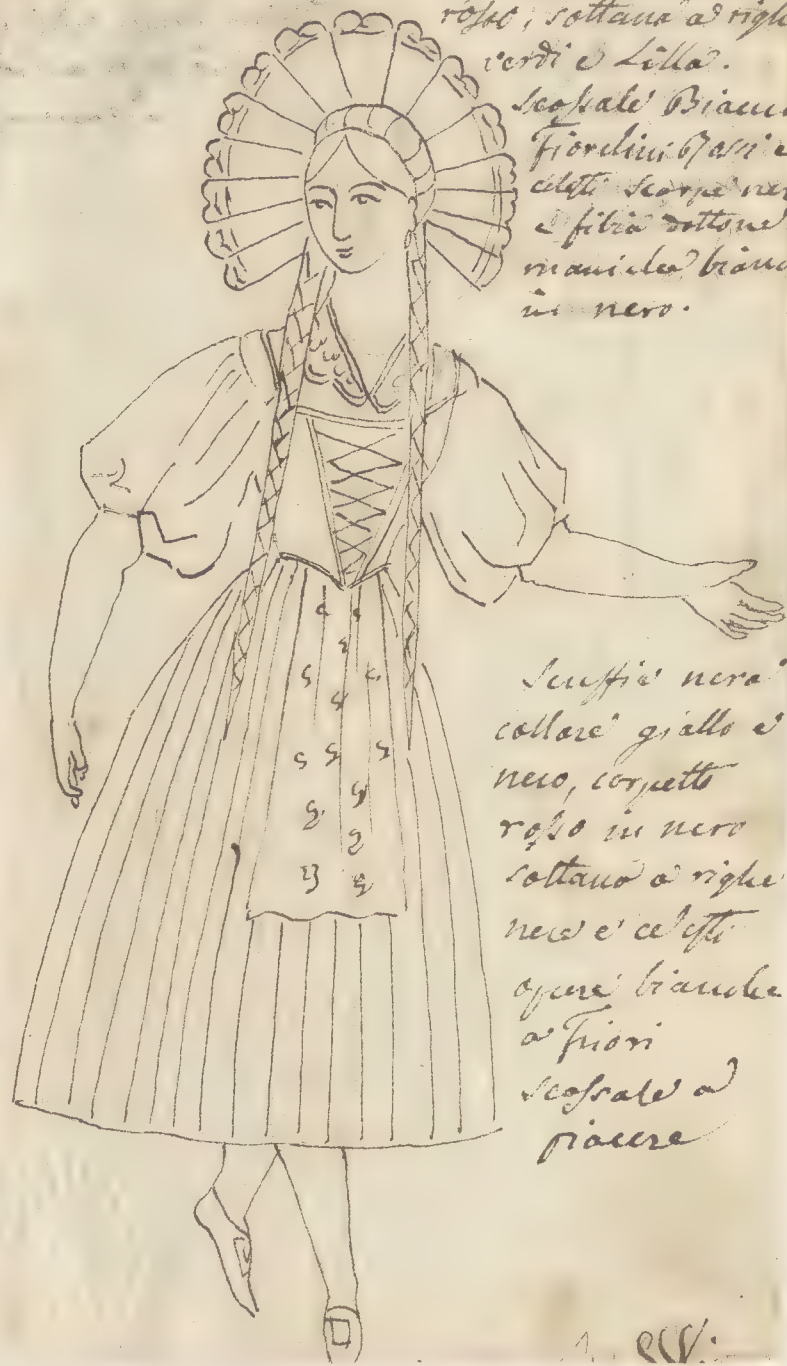 rosso, sottana a righ
verdi e Lilla.
scossale Bianc
Fiorelini Rossi e
celesti scarpe ner
e fibia dottone
maniche bianc
in nero.
Scuffia nera
collare giallo e
nero, corpetto
rosso in nero
sottana a righe
nere e celesti
opere bianche
a Fiori
scossale a
piacere